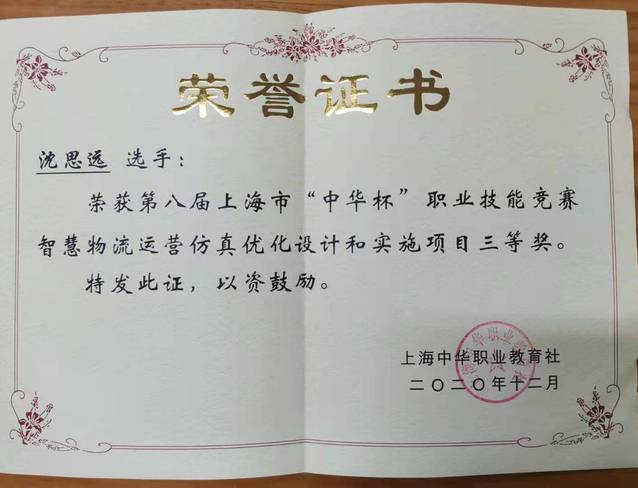 荣誉证书
沈思远 选手：
荣获第八届上海市“中华杯”职业技能竞赛
智慧物流运营仿真优化设计和实施项目三等奖。
特发此证，以资鼓励。
上海中华职业教育社
二〇二〇年十二月